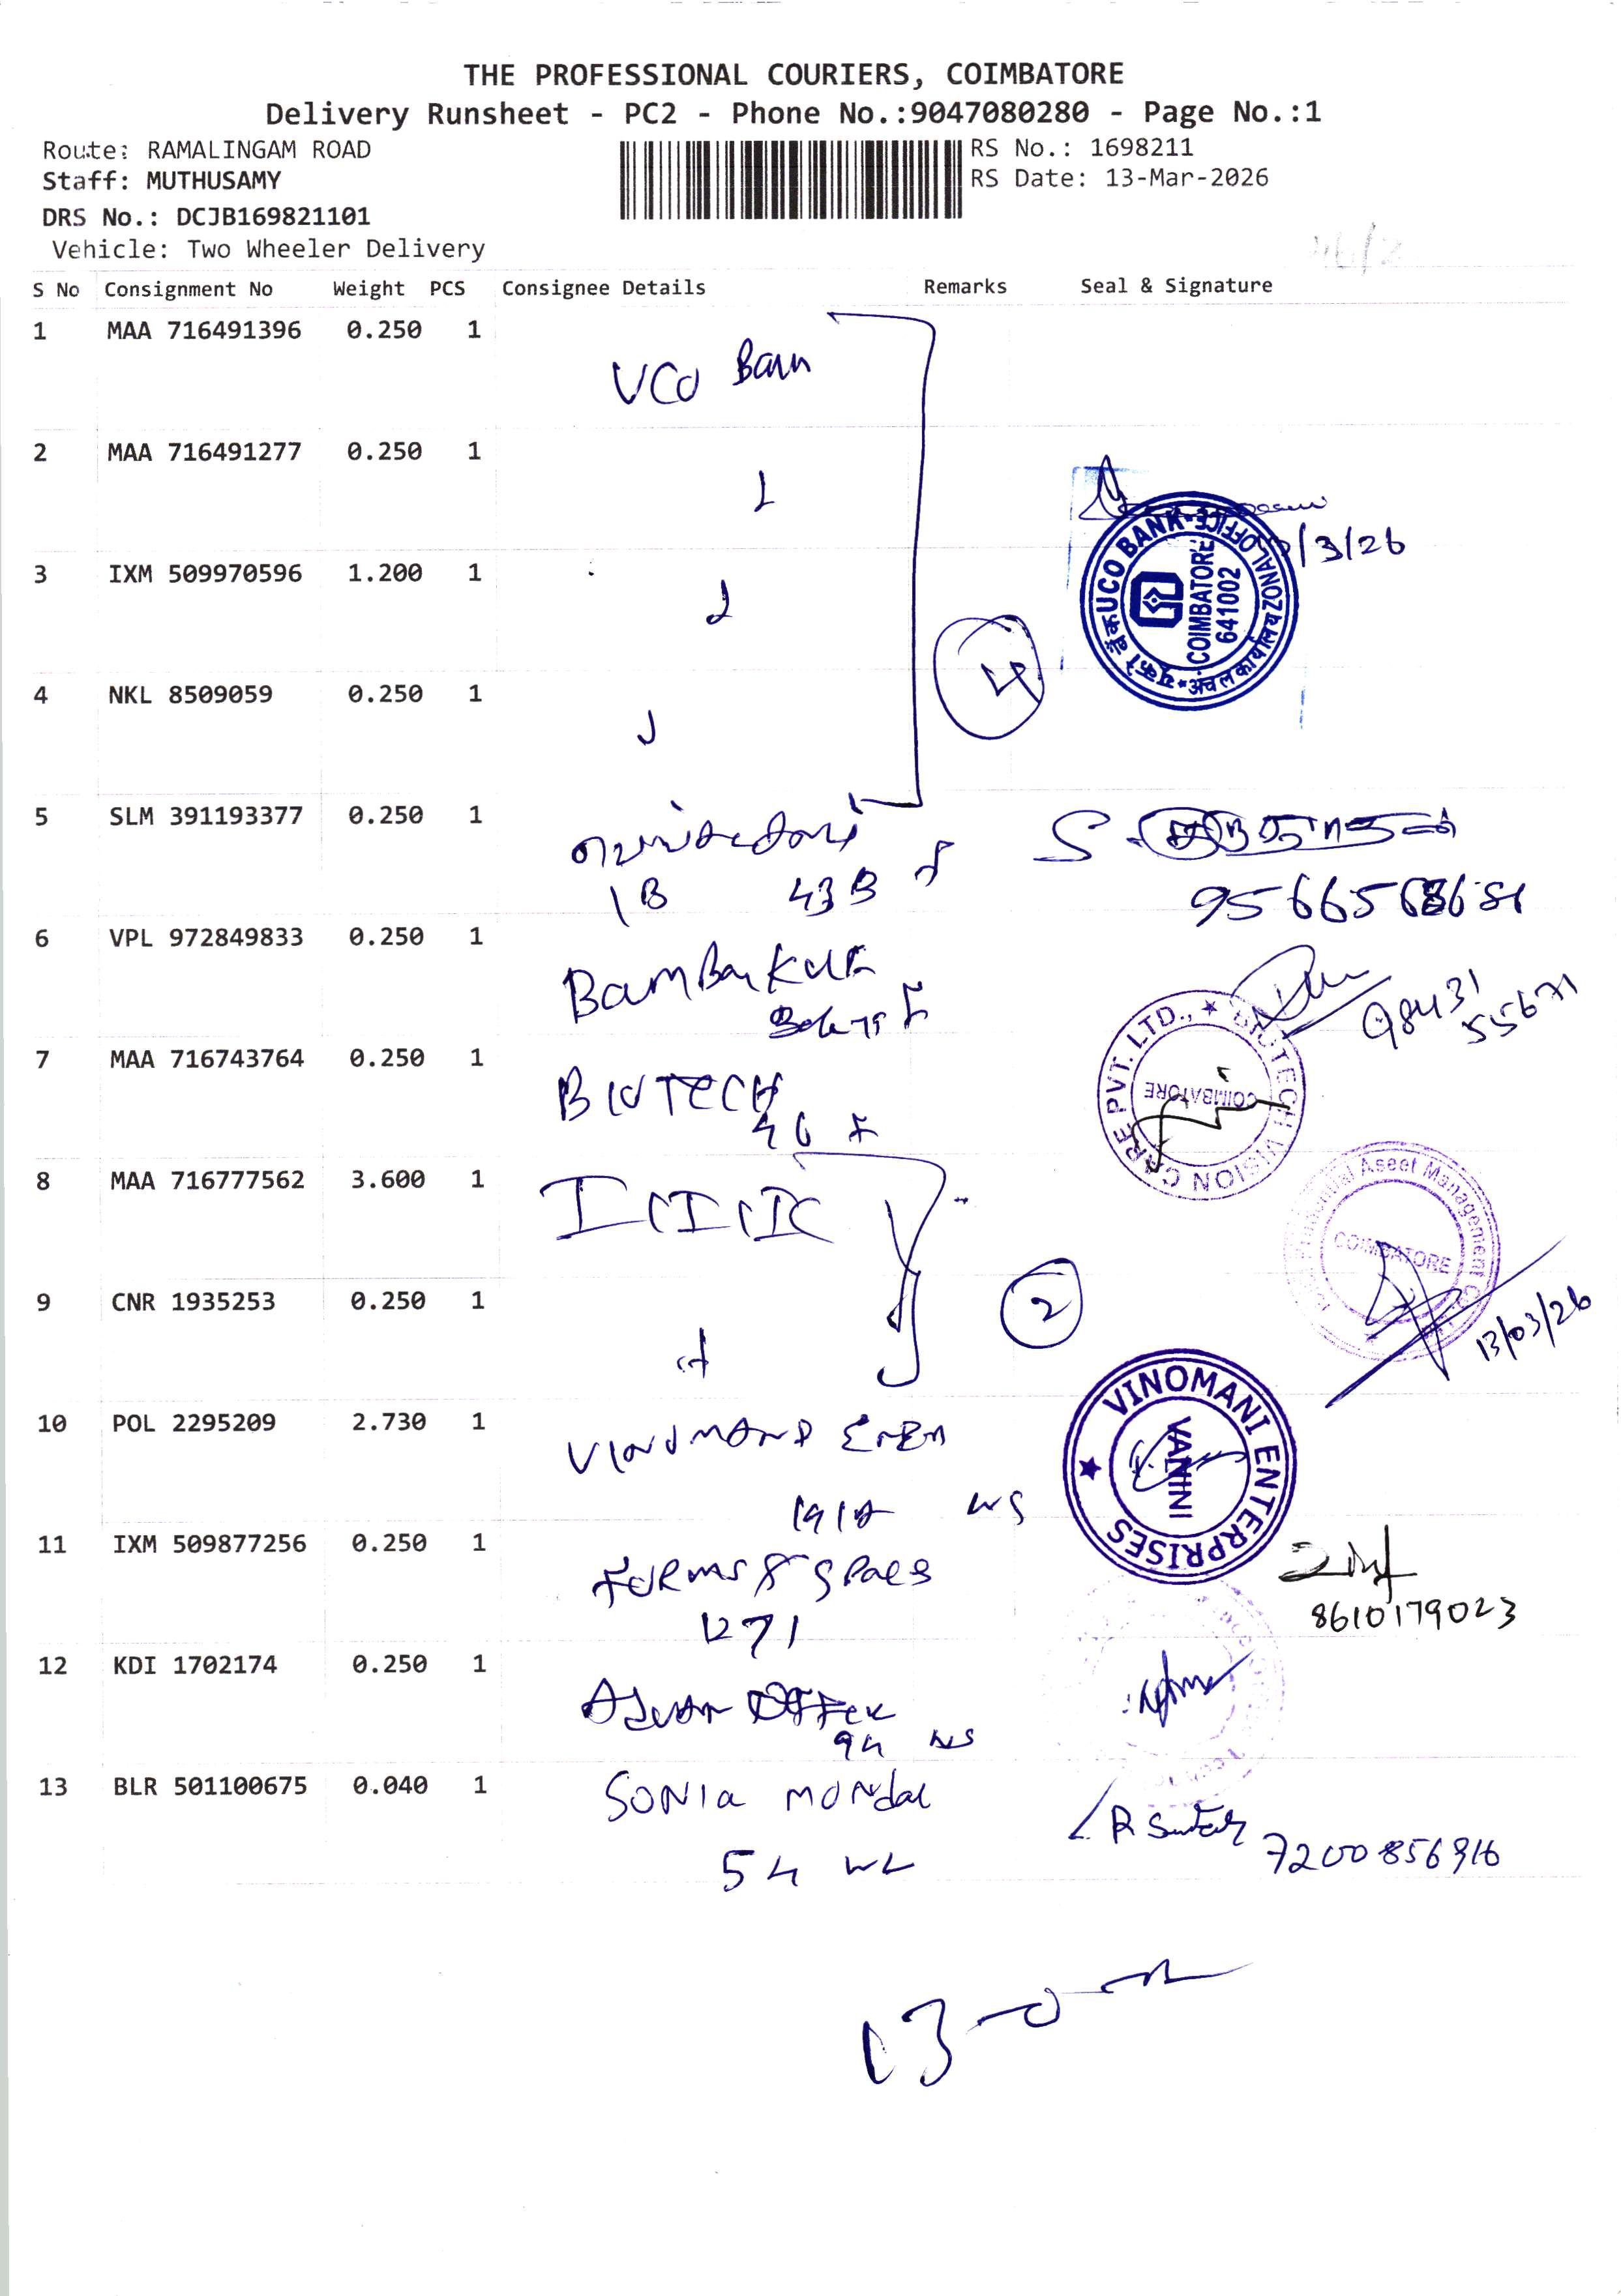 THE PROFESSIONAL COURIERS, COIMBATORE
Delivery Runsheet - PC2 - Phone No.:9047080280 - Page No.:1
Route: RAMALINGAM ROAD
Staff: MUTHUSAMY
DRS No.: DCJB169821101
Vehicle: Two Wheeler Delivery
RS No.: 1698211
RS Date: 13-Mar-2026
S No Consignment No Weight PCS Consignee Details Remarks Seal & Signature
1 MAA 716491396 0.250 1
UCO Bank
2 MAA 716491277 0.250 1
UCO BANK ZONAL OFFICE
यूको बैंक अंचल कार्यालय
COIMBATORE
641002
/3/26
3 IXM 509970596 1.200 1
4
4 NKL 8509059 0.250 1
5 SLM 391193377 0.250 1
1B 43B
6 VPL 972849833 0.250 1
98431
55671
7 MAA 716743764 0.250 1
BIOTECH
46
BIOTECH VISION CARE PVT. LTD.,
COIMBATORE
8 MAA 716777562 3.600 1
ICICI
Prudential Asset Management
COIMBATORE
13/03/26
9 CNR 1935253 0.250 1
2
10 POL 2295209 2.730 1
VINOMANI ENTERPRISES
VANINI
WS
11 IXM 509877256 0.250 1
FORMS & SPACES
1271
8610179023
12 KDI 1702174 0.250 1
94 WS
13 BLR 501100675 0.040 1
SONIA MONDAL
54 WL
7200856916
13-0-